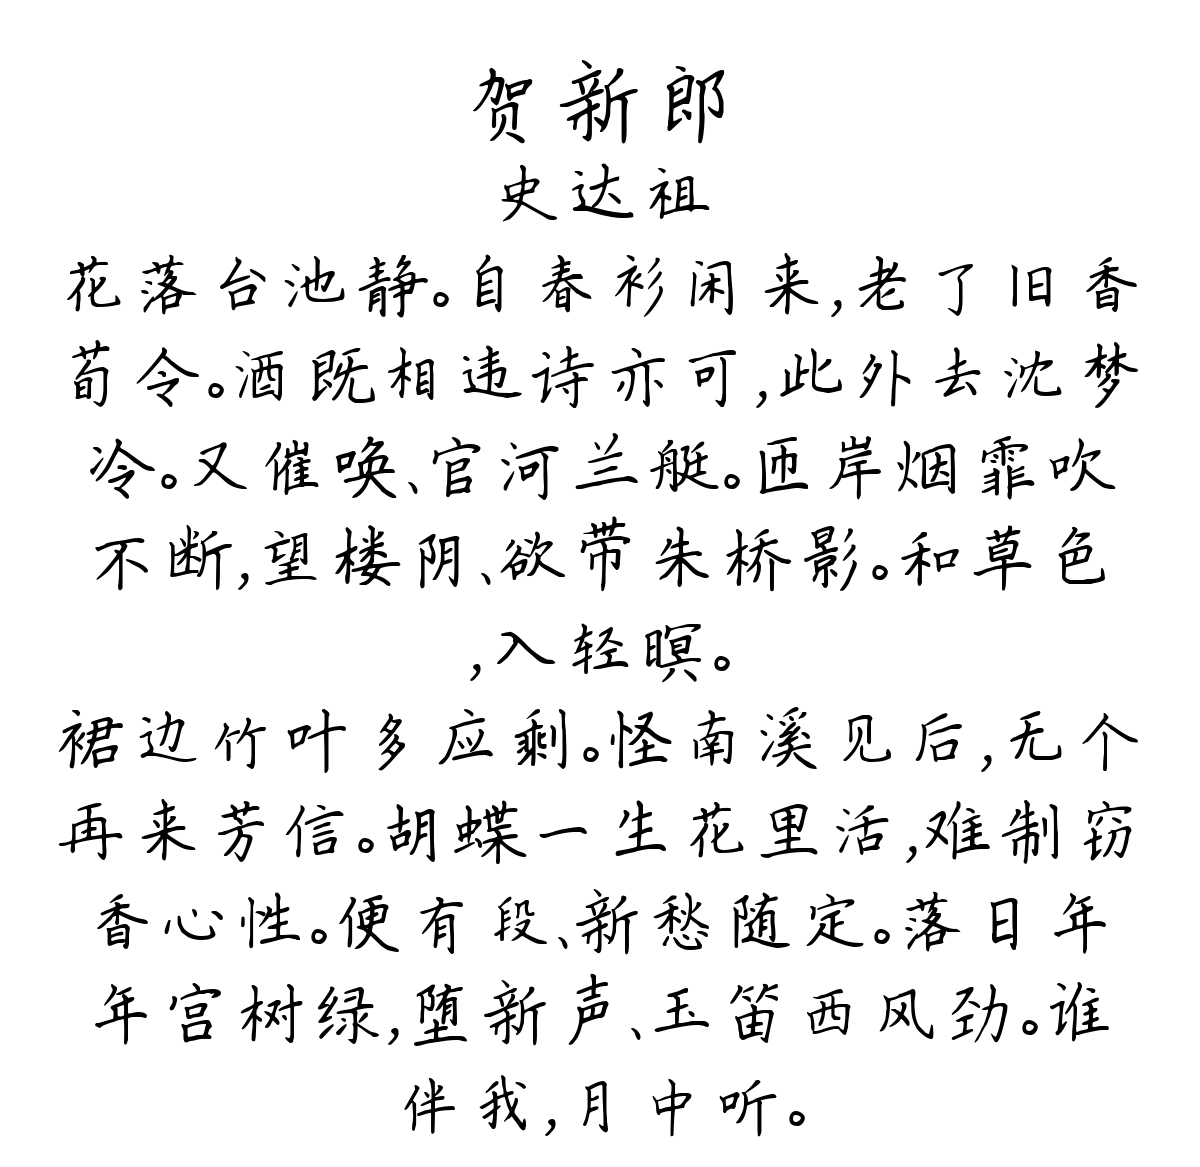 贺新郎
史达祖
花落台池静。自春衫闲来,老了旧香
荀令。酒既相违诗亦可,此外去沈梦
冷。又催唤、官河兰艇。匝岸烟霏吹
不断,望楼阴、欲带朱桥影。和草色
,入轻暝。
裙边竹叶多应剩。怪南溪见后,无个
再来芳信。胡蝶一生花里活,难制窃
香心性。便有段、新愁随定。落日年
年宫树绿,堕新声、玉笛西风劲。谁
伴我,月中听。